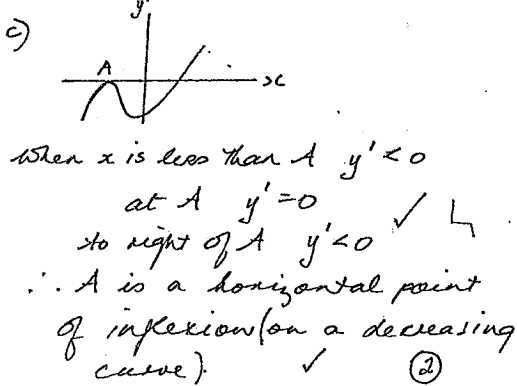 c)
y'
A
x
when x is less than A y' < 0
at A y' = 0
to right of A y' < 0 ✓
∴ A is a horizontal point
of inflexion (on a decreasing
curve). ✓ ②